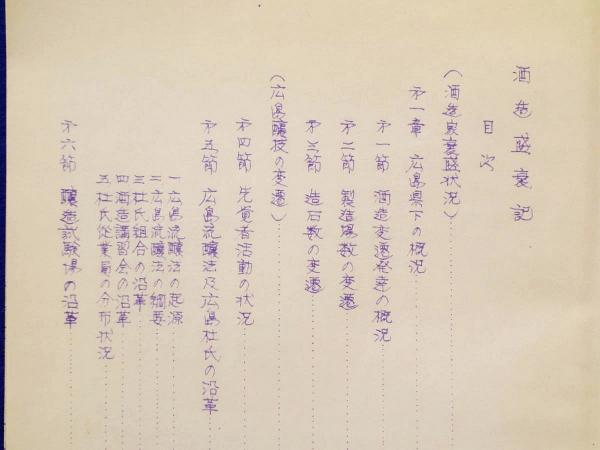 酒造盛衰記
目次
(酒造家衰盛状況)
第一章 広島県下の概況
第一節 酒造変遷発達の概況
第二節 製造場数の変遷
第三節 造石数の変遷
(広島醸技の変遷)
第四節 先覚者活動の状況
第五節 広島流醸法及広島杜氏の沿革
一広島流醸法の起源
二広島流醸法の綱要
三杜氏組合の沿革
四酒造講習会の沿革
五杜氏従業員の分布状況
第六節 醸造試験場の沿革